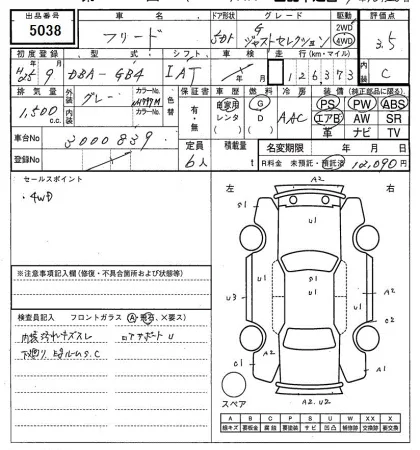 出品番号 車名 ドア形状 グレード 駆動 評価点
5038 フリード 5DR G ジャストセレクション 2WD 4WD 3.5
初度登録 型式 シフト 車検 走行(K・マイル) 内装
H25年9月 DBA-GB4 IAT 年 月 126,373 C
排気量 外装 グレー カラーNo. 色替 保証書 車歴 燃料 冷房 装備(純正部品に限る)
1,500 c.c. 内装 カラーNo. 有・無 自家用 レンタ G D AAC PS PW ABS
エアB AW SR
革 ナビ TV
車台No 3000839 定員 積載量 名変期限 年 月 日
登録No 6人 t R料金 未預託・預託済 12,090円
セールスポイント
・4WD
左 右
A2
S1
U1
U1
S1
A2
U3
U2
C2
C1
A2
A2
A1
A2.U2
スペア
※注意事項記入欄(修復・不具合箇所および状態等)
検査員記入 フロントガラス(A・飛石、×要ス)
内装汚れキズスレ
リアゲート U
下廻り
A B C P S U W XX X
線キズ 要板金 腐蝕 要塗装 サビ 凹凸 補修跡 交換済 要交換